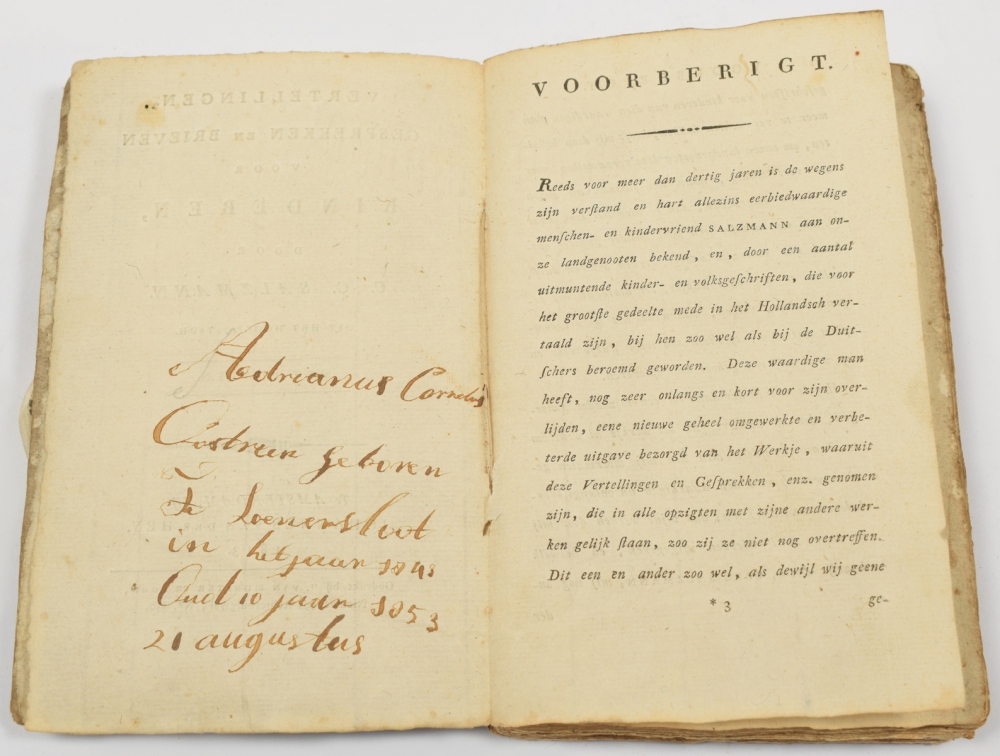 Adrianus Cornelis
geboren
Te Loenersloot
in het jaar 1843
Oud 10 jaar 1853
21 augustus
VOORBERIGT.
Reeds voor meer dan dertig jaren is de wegens
zijn verſtand en hart allezins eerbiedwaardige
menſchen- en kindervriend SALZMANN aan on-
ze landgenooten bekend, en, door een aantal
uitmuntende kinder- en volksgeſchriften, die voor
het grootſte gedeelte mede in het Hollandsch ver-
taald zijn, bij hen zoo wel als bij de Duit-
ſchers beroemd geworden. Deze waardige man
heeft, nog zeer onlangs en kort voor zijn over-
lijden, eene nieuwe geheel omgewerkte en verbe-
terde uitgave bezorgd van het Werkje, waaruit
deze Vertellingen en Geſprekken, enz. genomen
zijn, die in alle opzigten met zijne andere wer-
ken gelijk ſtaan, zoo zij ze niet nog overtreffen.
Dit een en ander zoo wel, als dewijl wij geene
* 3 ge-